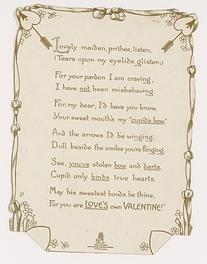 Lovely maiden, prithee, listen,
(Tears upon my eyelids glisten;)
For your pardon I am craving,
I have not been misbehaving
For, my dear, I'd have you know,
Your sweet mouth's my "cupid's bow"
And the arrows I'd be winging,
Dull beside the smiles you're flinging.
See, you've stolen bow and darts.
Cupid only binds true hearts.
May his sweetest bonds be thine,
For you are LOVE'S own VALENTINE!"